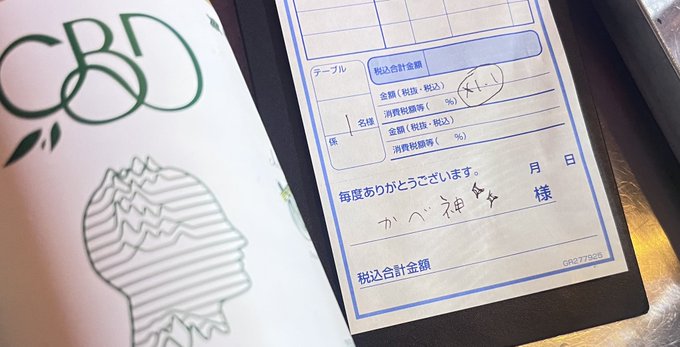 CBD
テーブル
係
1名様
税込合計金額
金額(税抜・税込)
×1.1
消費税額等( %)
金額(税抜・税込)
消費税額等( %)
毎度ありがとうございます。
月 日
かべ神 様
税込合計金額
GR277925